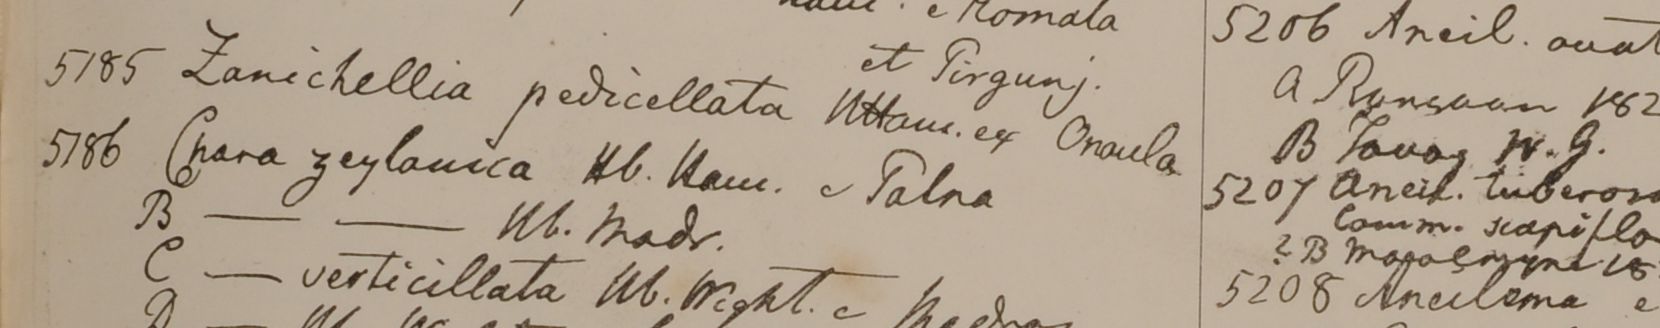 Ham. e Komala
et Pirgunj.
5185 Zanichellia pedicellata HHam. ex Onaula
5186 Chara zeylanica Hb. Ham. e Patna
B — — Hb. Madr.
C — verticillata Hb. Wight. e Madras
D —
5206 Aneil. ovat
a Rangoon 182
B Tavoy W. G.
5207 Aneil. tuberosa
Comm. scapiflo
? B
5208 Aneilema e